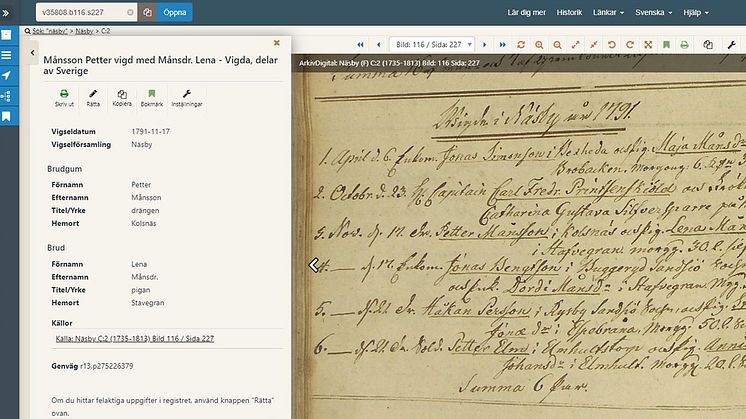 v35808.b116.s227
Öppna
Lär dig mer
Historik
Länkar
Svenska
Hjälp
Sök: "näsby" > Näsby > C:2
Månsson Petter vigd med Månsdr. Lena - Vigda, delar
av Sverige
Skriv ut
Rätta
Kopiera
Bokmärk
Inställningar
Vigseldatum 1791-11-17
Vigselförsamling Näsby
Brudgum
Förnamn Petter
Efternamn Månsson
Titel/Yrke drängen
Hemort Kolsnäs
Brud
Förnamn Lena
Efternamn Månsdr.
Titel/Yrke pigan
Hemort Stavegran
Källor
Källa: Näsby C:2 (1735-1813) Bild 116 / Sida 227
Genväg r13.p275226379
Om du hittar felaktiga uppgifter i registret, använd knappen "Rätta"
ovan.
Bild: 116 / Sida: 227
ArkivDigital: Näsby (F) C:2 (1735-1813) Bild: 116 Sida: 227
Summa
Wigde i Näsby år 1791.
1. April d. 6. Enkom. Jonas Simonson i Bexheda och pig. Maja Månsdr
Brobacken. Morgong. 6.
2. Octobr. d. 23. H. Capitain Carl Fredr. Printsensköld och
Catharina Gustava Silfversparre på
3. Nov. d. 17. Dr. Petter Månsson i Kolsnäs och pig. Lena Måns
i Stafvegran. morgg. 30.
4. — d. 17. Enkom. Jonas Bengtsson i Buggeryd Sandsjö
och pig. Dordi Månsdr i Stafvegran. Morg.
5. — Dr. Håkan Persson i Ryssby Sandsjö Sokn och pig.
Jonæ dr i Epabrana. Morgg. 30.
6. — Sold. Petter Elm i Elmhultstorp och pig. Anni
Johansdr i Elmhult. morgg. 20.
Summa 6 Par.